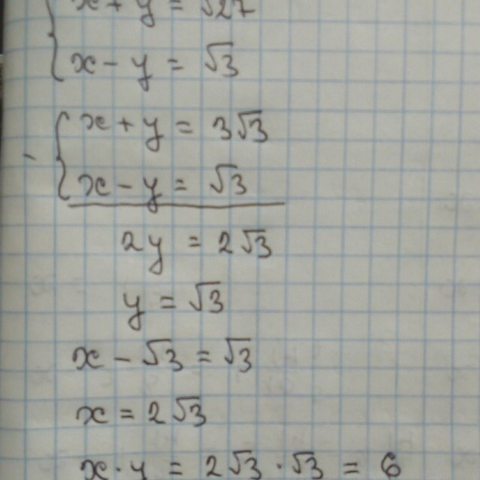 x + y = √27
x - y = √3
x + y = 3√3
- x - y = √3
2y = 2√3
y = √3
x - √3 = √3
x = 2√3
x · y = 2√3 · √3 = 6